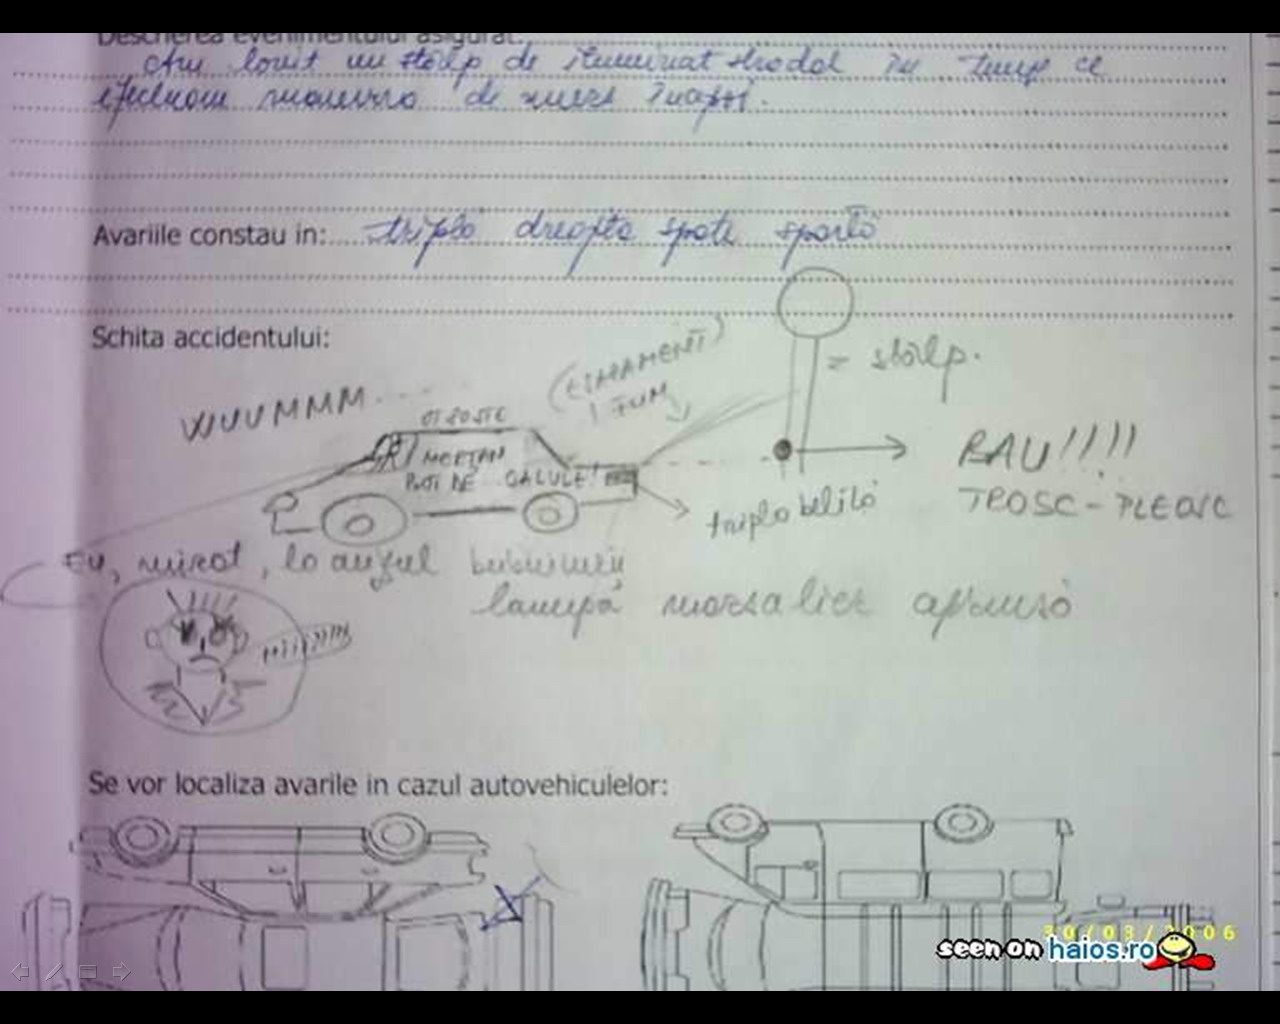 Descrierea evenimentului asigurat:
Am lovit un stâlp de iluminat stradal în timp ce
efectuam manevra de mers înapoi.
Avariile constau in: tripla dreapta spate spartă
Schita accidentului:
WUUMMM...
(EȘAPAMENT)
FUM
= stâlp.
MORTAN
BAU!!!!
TROSC - PLEOSC
tripla belită
EU, mirat, la auzul bubuiturii
lampă marsalier aprinsă
Se vor localiza avarile in cazul autovehiculelor:
30/03/2006
seen on haios.ro